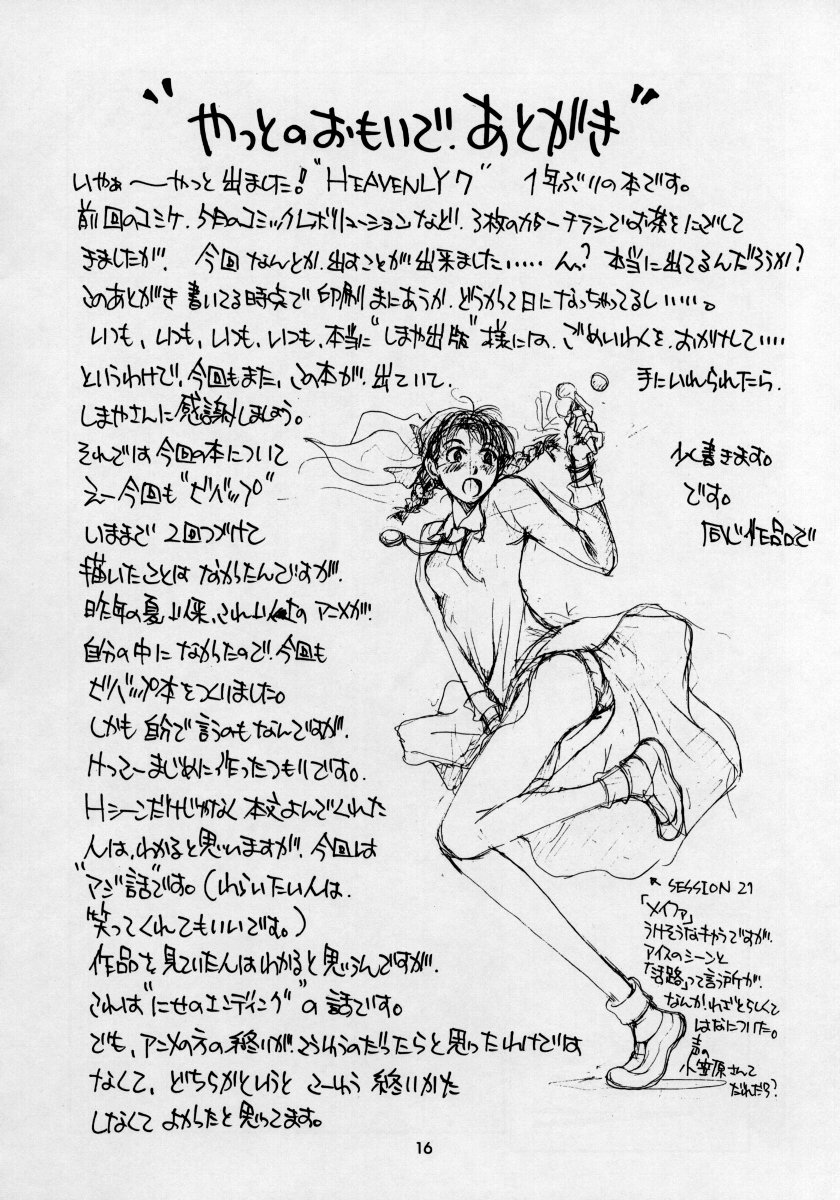 "やっとのおもいで!あとがき"
いやぁ〜やっと出ました!"HEAVENLY7" 1年ぶりの本です。
前回のコミケ、5月のコミックレボリューションなど!3枚のカラーチラシでお茶をにごして
きましたが! 今回なんとか、出すことが出来ました……ん?本当に出てるんだろうか?
このあとがき書いてる時点で印刷まにあうか、どうかって日になっちゃってるし……。
いつも、いつも、いつも、いつも、本当に"しまや出版"様には、ごめいわくを、おかけして……
というわけで、今回もまた、この本が、出ていて、手にいれられたら、
しまやさんに感謝しましょう。
それでは今回の本について 少く書きます。
えー今回も"ビバップ" です。
いままで2回つづけて 同じ作品で
描いたことはなかったんですが、
昨年の夏以来、これ以上のアニメが!
自分の中になかったので!今回も
ビバップ本をつくりました。
しかも自分で言うのもなんですが、
けっこーまじめに作ったつもりです。
Hシーンだけじゃなく本文よんでくれた
人は、わかると思いますが、今回は
"マジ話"です。(わらいたい人は、
笑ってくれてもいいです。)
作品を見ていた人はわかると思うんですが、
これは"にせのエンディング"の話です。
でも、アニメの方の終りが、こういうのだったらと思ったわけでは
なくて、どちらかというと こーゆう終いかた
しなくてよかったと思ってます。
↖SESSION 21
「メイファ」
うけそうなキャラですが、
アイスのシーンと
「活路」って言う所が、
なんかわざとらしくて
はなについた。
声の
小笠原さんて
だれだろ?
16